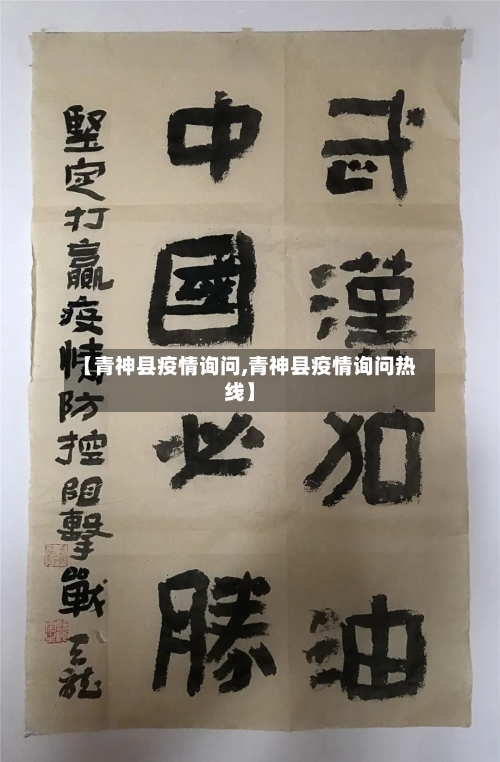 武漢加油
中國必勝
堅定打贏疫情防控阻擊戰
【青神县疫情询问,青神县疫情询问热
线】